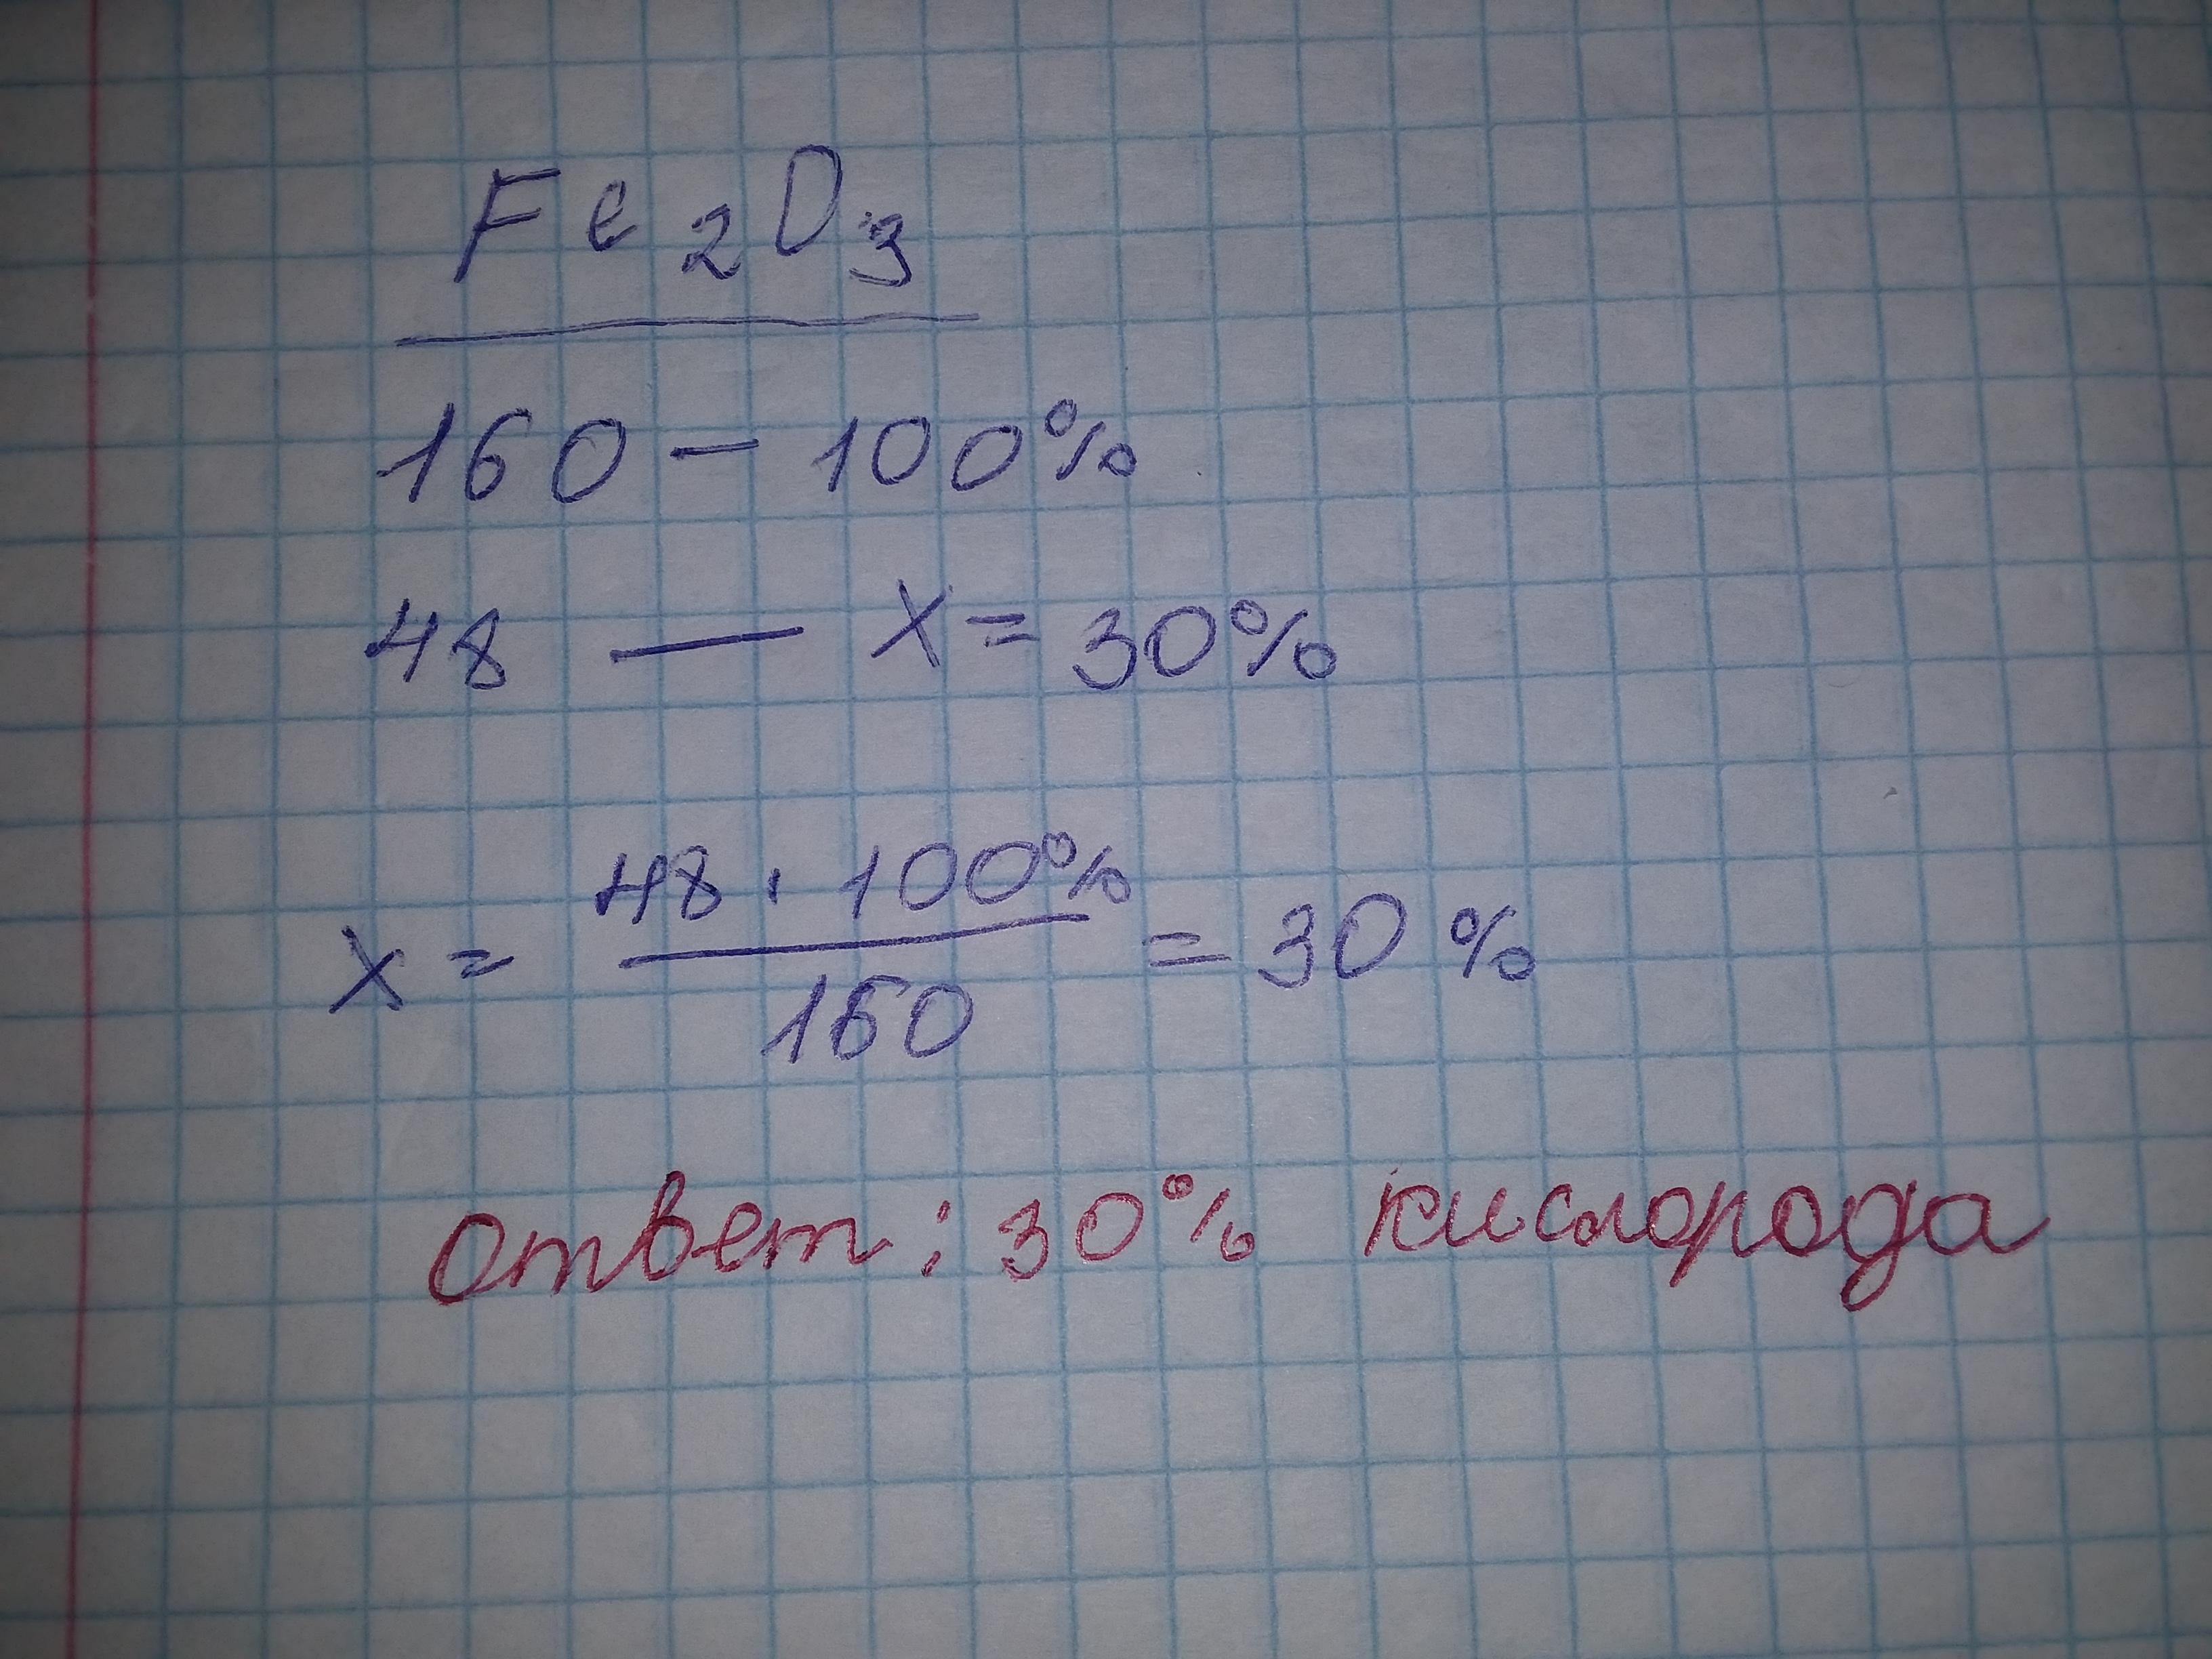 Fe₂O₃
160 – 100%
48 — x = 30%
x = 48 · 100% / 160 = 30 %
ответ: 30% кислорода